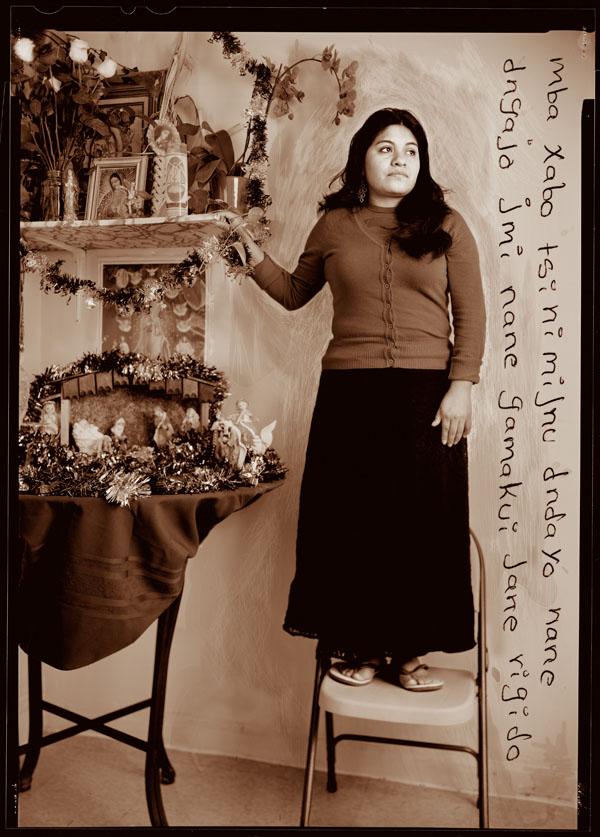 mba xabo tsi ni mijnu dndayo nane
dngajo jmi nane gamakui jane rigido